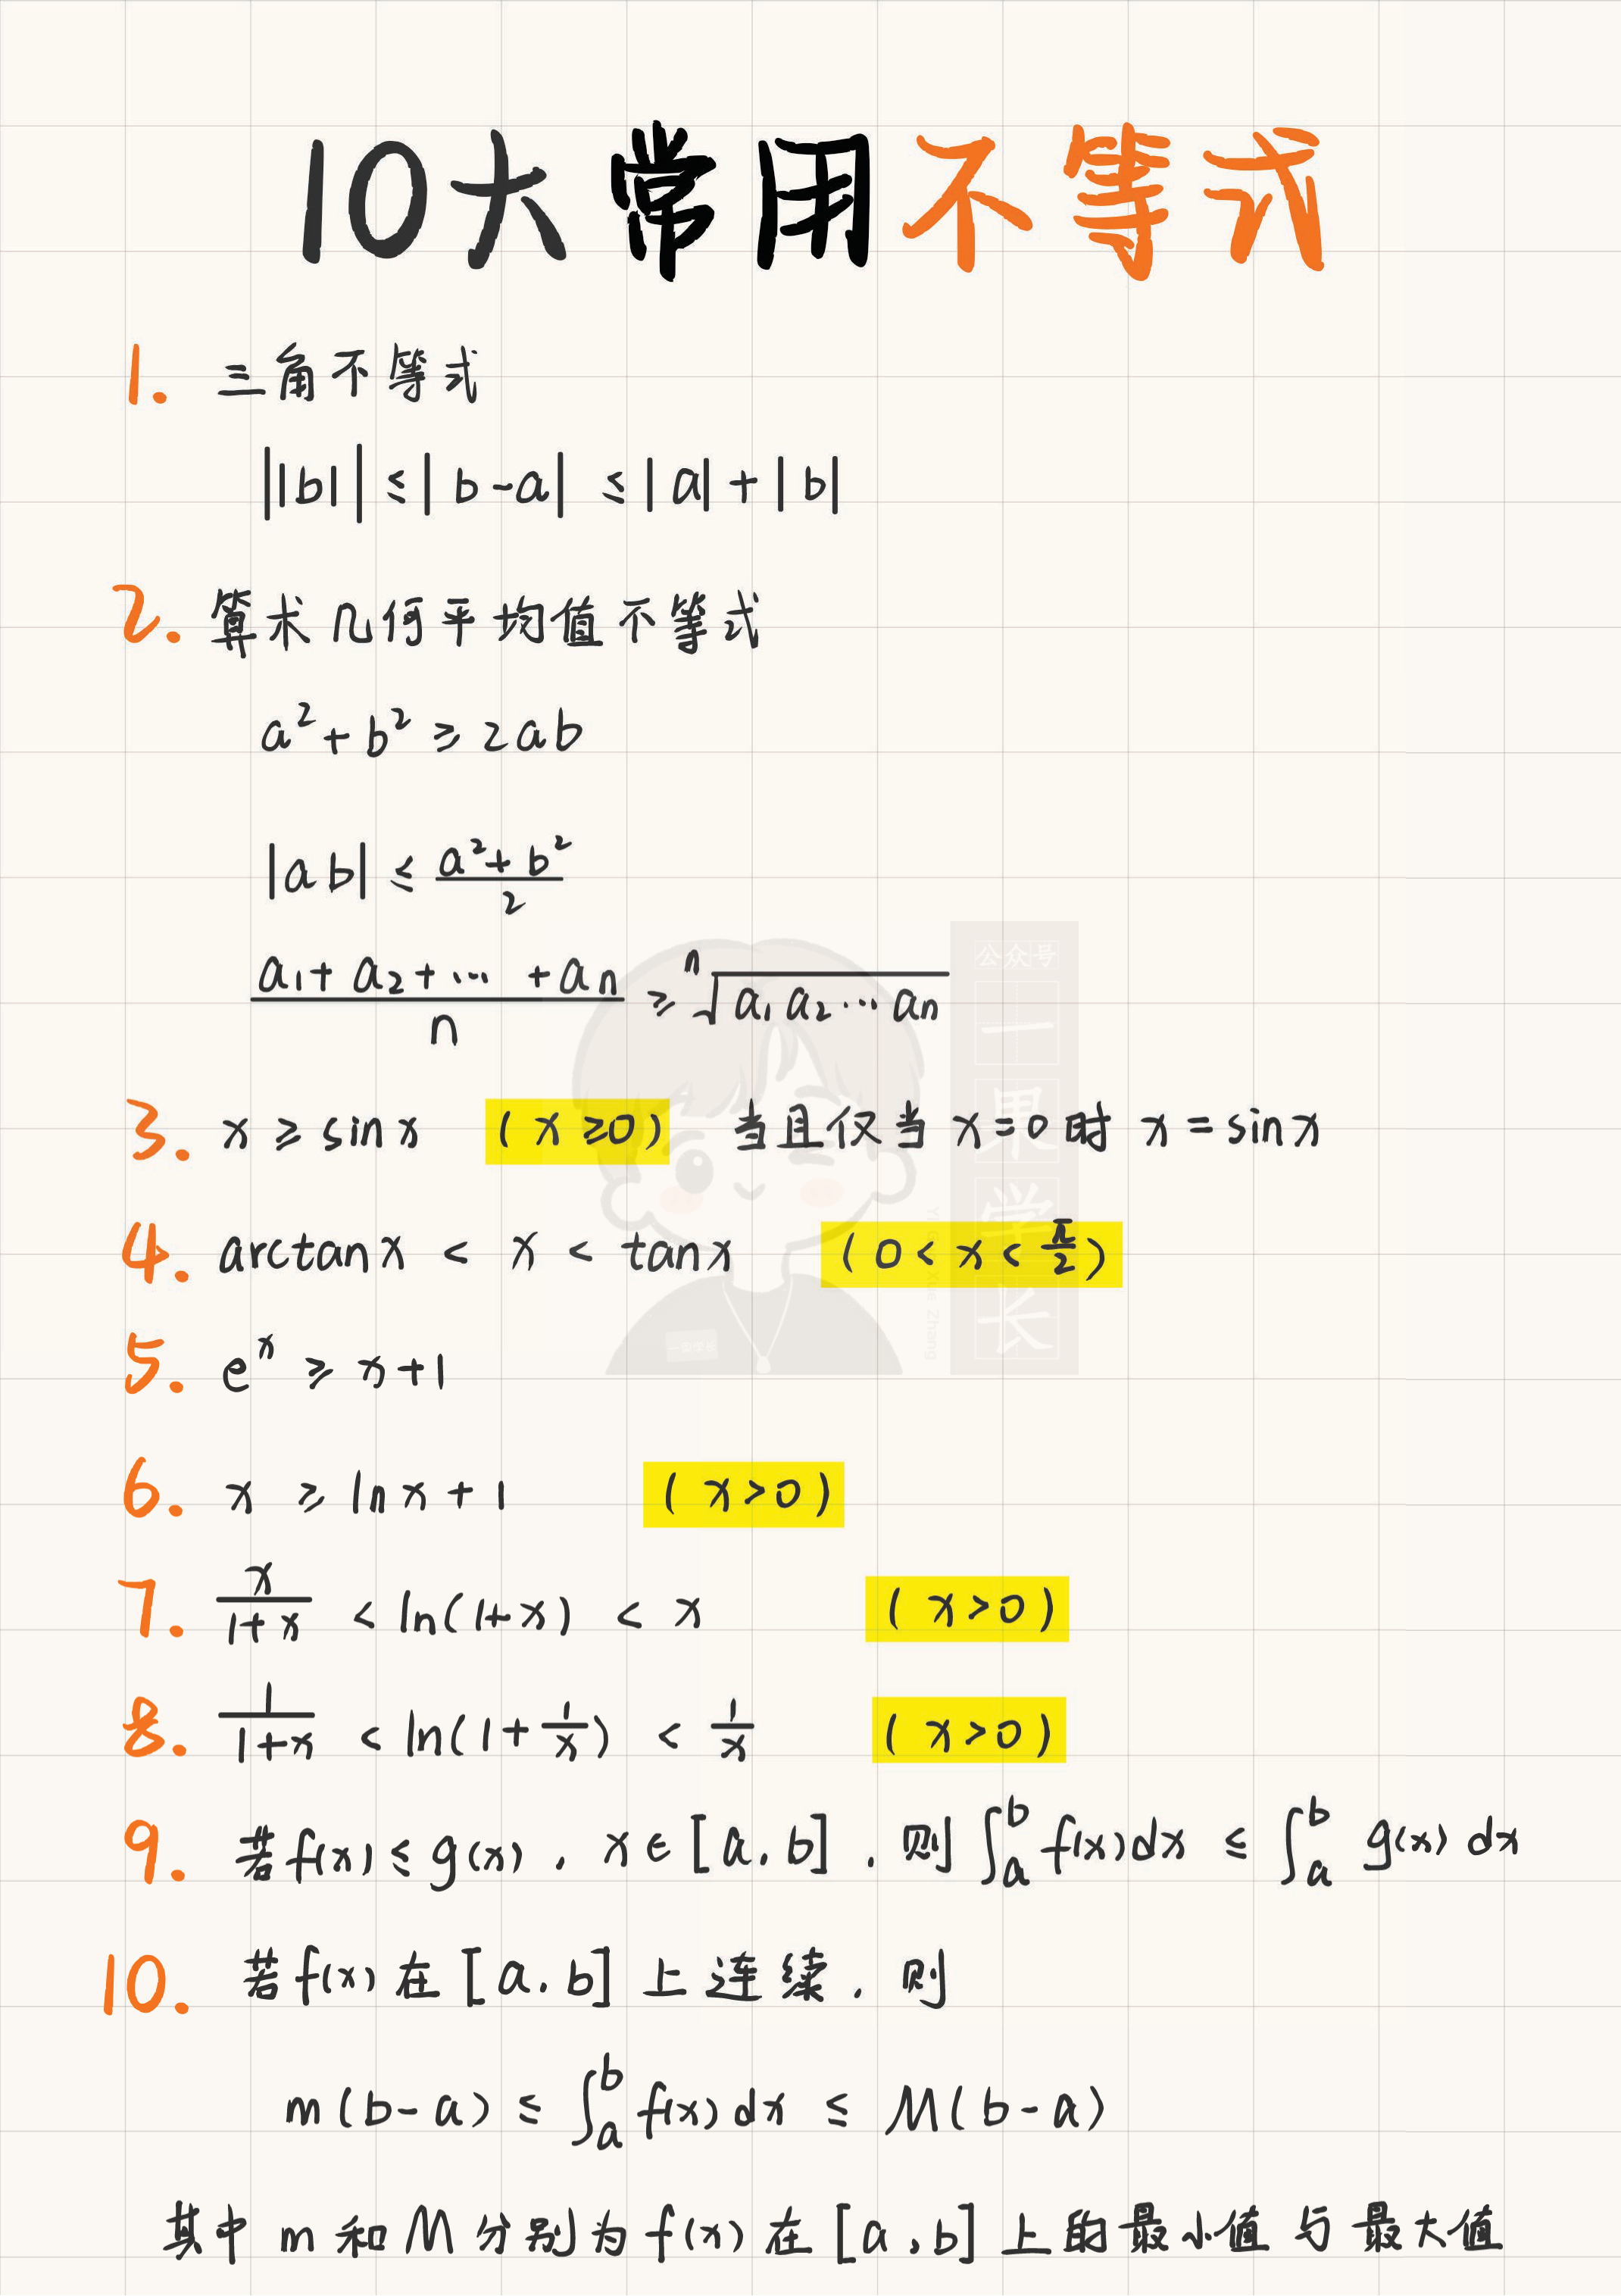 10大常用不等式
1. 三角不等式
||b|| ≤ |b-a| ≤ |a| + |b|
2. 算术几何平均值不等式
a² + b² ≥ 2ab
|ab| ≤ \frac{a²+b²}{2}
\frac{a₁+a₂+⋯+aₙ}{n} ≥ \sqrt[n]{a₁a₂⋯aₙ}
3. x ≥ sin x (x ≥ 0) 当且仅当 x=0 时 x = sin x
4. arctan x < x < tan x (0 < x < \frac{π}{2})
5. eˣ ≥ x+1
6. x ≥ ln x + 1 (x>0)
7. \frac{x}{1+x} < ln(1+x) < x (x>0)
8. \frac{1}{1+x} < ln(1+\frac{1}{x}) < \frac{1}{x} (x>0)
9. 若f(x) ≤ g(x), x∈[a,b], 则 ∫_a^b f(x)dx ≤ ∫_a^b g(x)dx
10. 若f(x)在[a,b]上连续, 则
m(b-a) ≤ ∫_a^b f(x)dx ≤ M(b-a)
其中 m 和 M 分别为 f(x) 在 [a,b] 上的最小值与最大值
公众号
一果学长
一果学长